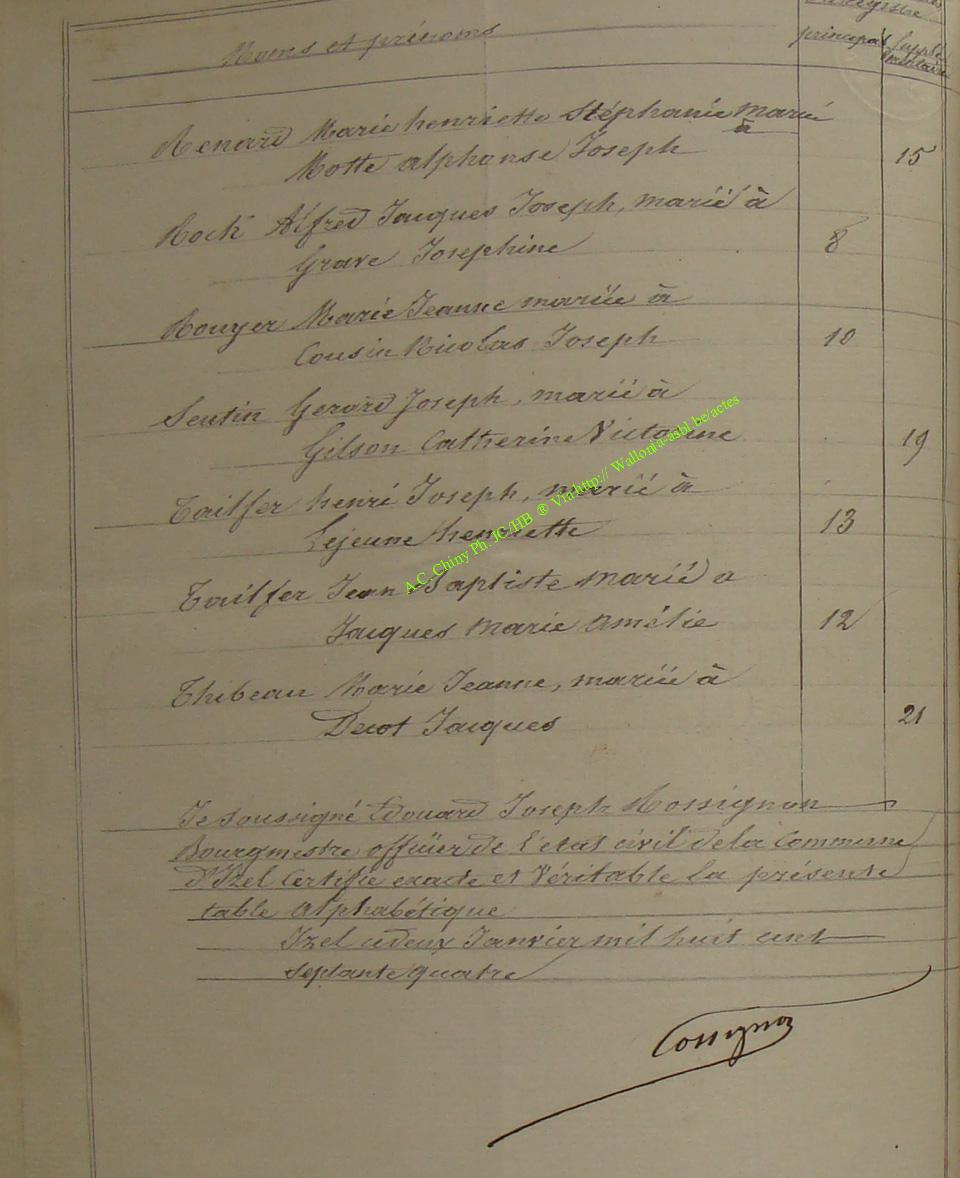 registre
Noms et prénoms
principal Supplé
mentaire
Renard Marie henriette Stéphanie marié
à
Motte alphonse Joseph 15
Rock Alfred Jacques Joseph, marié à
Grave Josephine 8
Rouyer Marie Jeanne mariée à
Cousin Nicolas Joseph 10
Seutin Gerard Joseph, marié à
Gilson Catherine Victorine 19
Tailfer henri Joseph, marié à
Lejeune henriette 13
Tailfer Jean Baptiste marié a
Jacques Marie Amélie 12
Thibeau Marie Jeanne, mariée à
Decot Jacques 21
Je soussigné Edouard Joseph Rossignon
Bourgmestre officier de l'état civil de la Commune
d'Izel Certifie exacte et Véritable la présente
table Alphabétique
Izel ce deux Janvier mil huit cent
septante quatre
Rossignon
A.C. Chiny Ph. JC/HB ® Via http:// Wallonia-asbl.be/actes